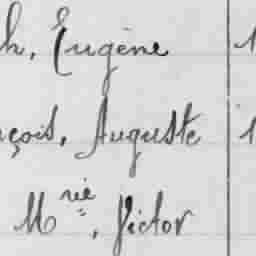 h, Eugène 1
nçois, Auguste 1
Mrie, Victor